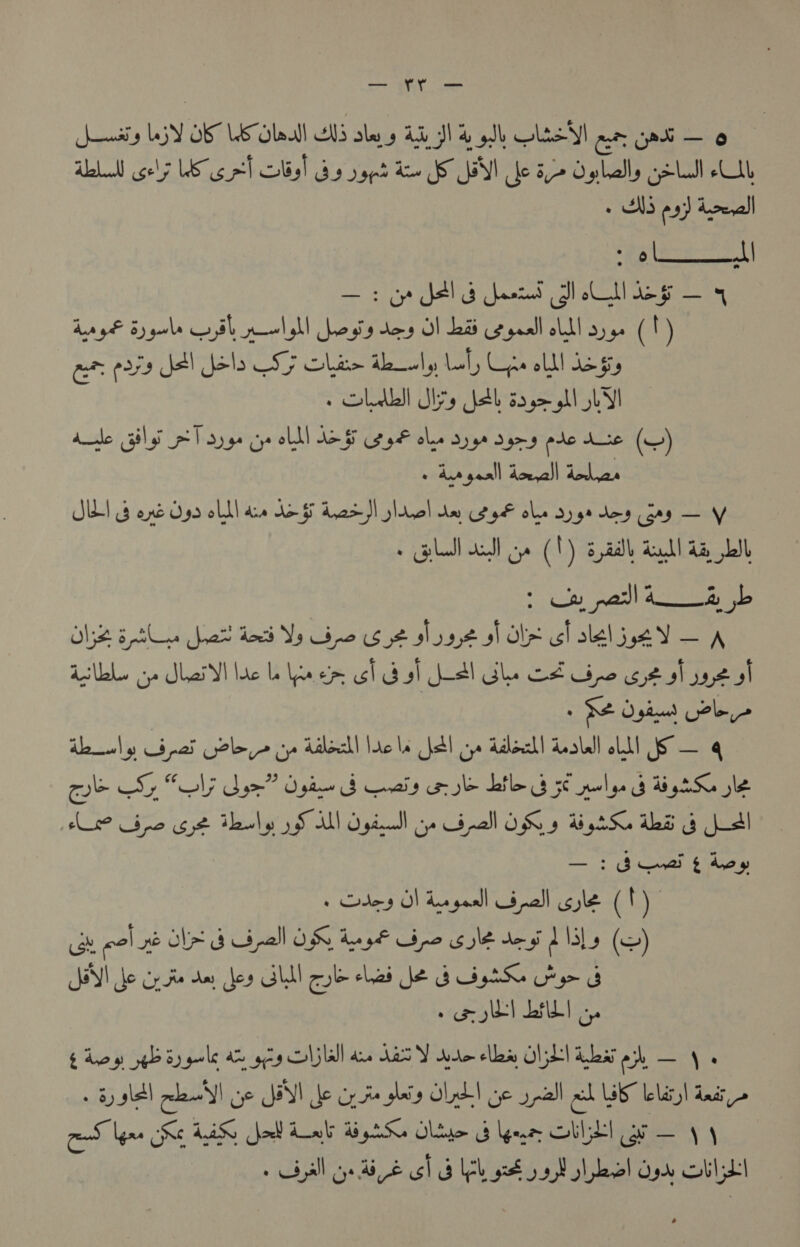 — ٢٣ —
٥ — تدهن جميع الأخشاب بالبوية الزيتية ويعاد ذلك الدهان كلما كان لازما وتغسل
بالماء الساخن والصابون مرة على الأقل كل ستة شهور وفى أوقات أخرى كلما تراءى للسلطة
الصحية لزوم ذلك .
الميــاه :
٦ — تؤخذ المياه التى تستعمل فى المحل من : —
( ا ) مورد المياه العمومى فقط ان وجد وتوصل المواسير بأقرب ماسورة عمومية
وتؤخذ المياه منها رأسا بواسطة حنفيات تركب داخل المحل وتردم جميع
الآبار الموجودة بالمحل وتزال الطلمبات .
(ب) عند عدم وجود مورد مياه عمومى تؤخذ المياه من مورد آخر توافق عليه
مصلحة الصحة العمومية .
٧ — ومتى وجد مورد مياه عمومى بعد اصدار الرخصة تؤخذ منه المياه دون غيره فى الحال
بالطريقة المبينة بالفقرة ( ا ) من البند السابق .
طريقــة التصريف :
٨ — لا يجوز ايجاد أى خزان أو مجرور أو مجرى صرف ولا فتحة تتصل مباشرة بخزان
أو مجرور أو مجرى صرف تحت مبانى المحل أو فى أى جزء منها ما عدا الاتصال من سلطانية
مرحاض بسيفون محكم .
٩ — كل المياه العادمة المتخلفة من المحل ما عدا المتخلفة من مرحاض تصرف بواسطة
مجار مكشوفة فى مواسير تمر فى حائط خارجى وتصب فى سيفون ”جولى تراب“ يركب خارج
المحل فى نقطة مكشوفة ويكون الصرف من السيفون المذكور بواسطة مجرى صرف صماء
بوصة ٤ تصب فى : —
( ا ) مجارى الصرف العمومية ان وجدت .
(ب) وإذا لم توجد مجارى صرف عمومية يكون الصرف فى خزان غير أصم يبنى
فى حوش مكشوف فى محل فضاء خارج المبانى وعلى بعد مترين على الأقل
من الحائط الخارجى .
١٠ — يلزم تغطية الخزان بغطاء حديد لا تنفذ منه الغازات وتهويته بماسورة ظهر بوصة ٤
مرتفعة ارتفاعا كافيا لمنع الضرر عن الجيران وتعلو مترين على الأقل عن الأسطح المجاورة .
١١ — تبنى الخزانات جميعها فى حيشان مكشوفة تابعة للمحل بكيفية يمكن معها كسح
الخزانات بدون اضطرار للرور بمحتوياتها فى أى غرفة من الغرف .